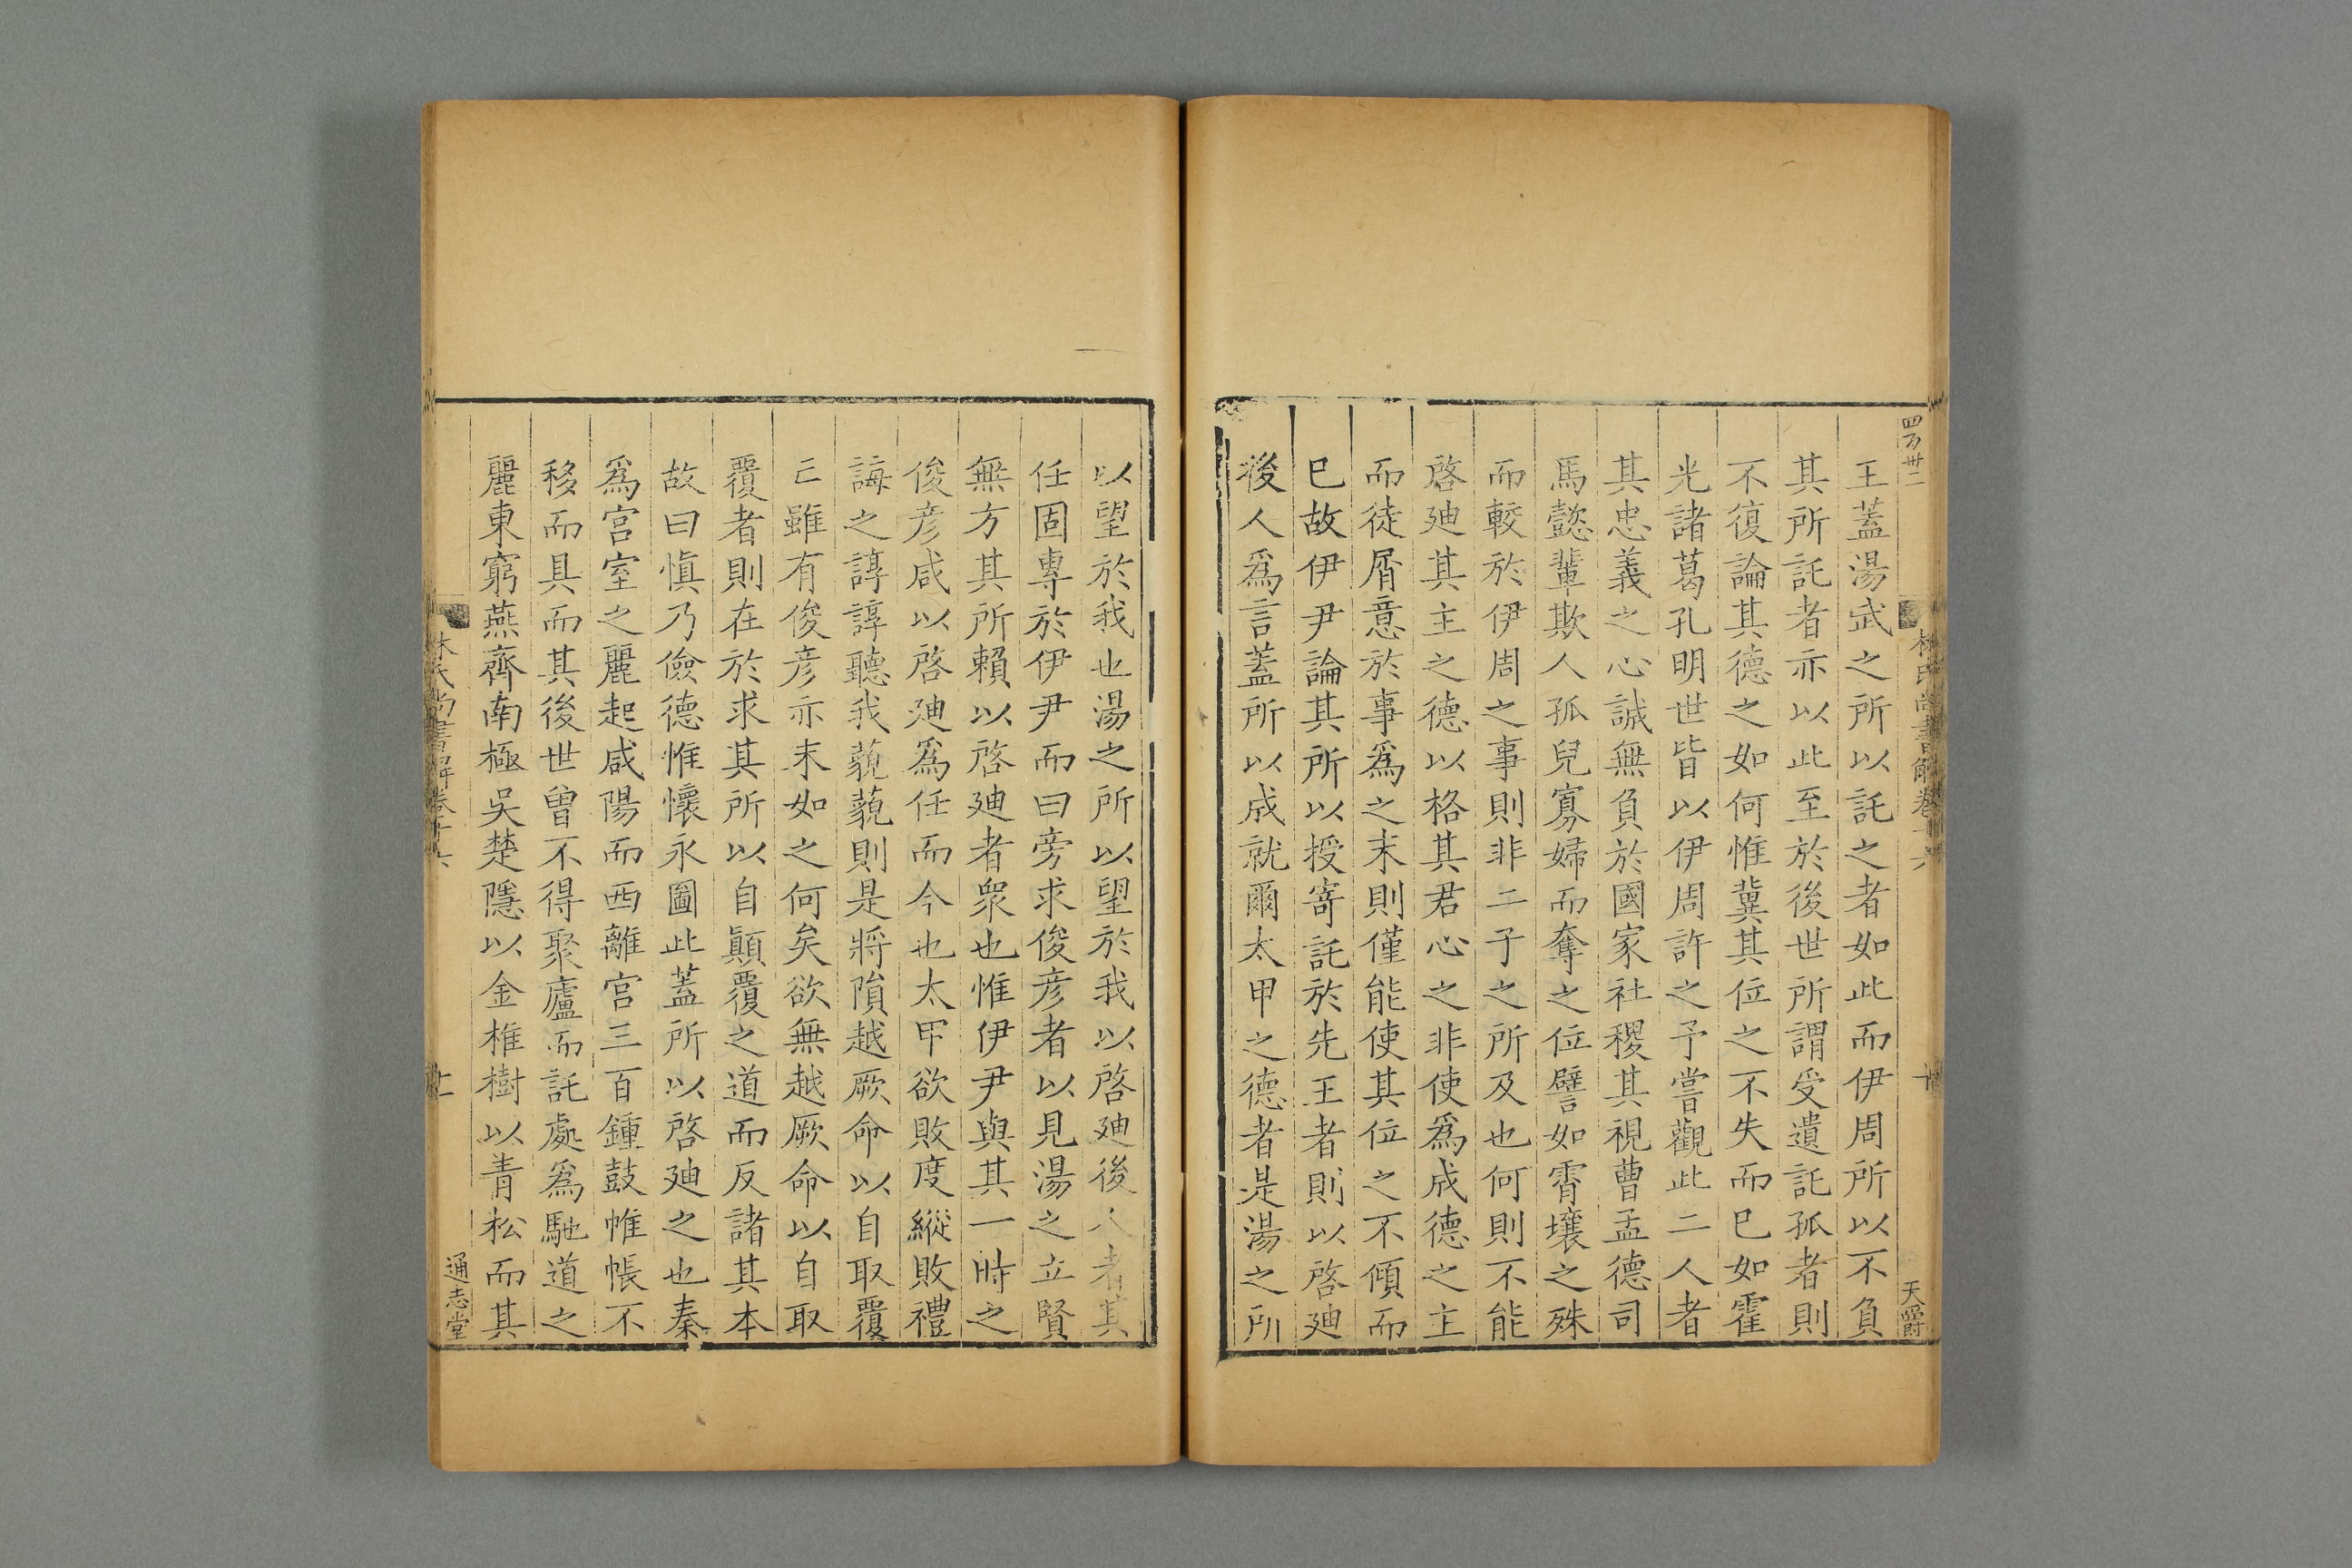 四百卅二
林氏尚書解卷十六
十
天爵
王蓋湯武之所以託之者如此而伊周所以不負
其所託者亦以此至於後世所謂受遺託孤者則
不復論其德之如何惟冀其位之不失而已如霍
光諸葛孔明世皆以伊周許之予嘗觀此二人者
其忠義之心誠無負於國家社稷其視曹孟德司
馬懿輩欺人孤兒寡婦而奪之位譬如霄壤之殊
而較於伊周之事則非二子之所及也何則不能
啓廸其主之德以格其君心之非使爲成德之主
而徒屑意於事爲之末則僅能使其位之不傾而
巳故伊尹論其所以授寄託於先王者則以啓廸
後人爲言蓋所以成就爾太甲之德者是湯之所
以望於我也湯之所以望於我以啓廸後人者其
任固專於伊尹而曰旁求俊彦者以見湯之立賢
無方其所賴以啓廸者衆也惟伊尹與其一時之
俊彦咸以啓廸爲任而今也太甲欲敗度縱敗禮
誨之諄諄聽我藐藐則是將隕越厥命以自取覆
亡雖有俊彦亦末如之何矣欲無越厥命以自取
覆者則在於求其所以自顛覆之道而反諸其本
故曰愼乃儉德惟懷永圖此蓋所以啓廸之也秦
爲宮室之麗起咸陽而西離宮三百鍾鼓帷帳不
移而具而其後世曾不得聚廬而託處爲馳道之
麗東窮燕齊南極吳楚隱以金椎樹以青松而其
林氏尚書解卷十六
通志堂